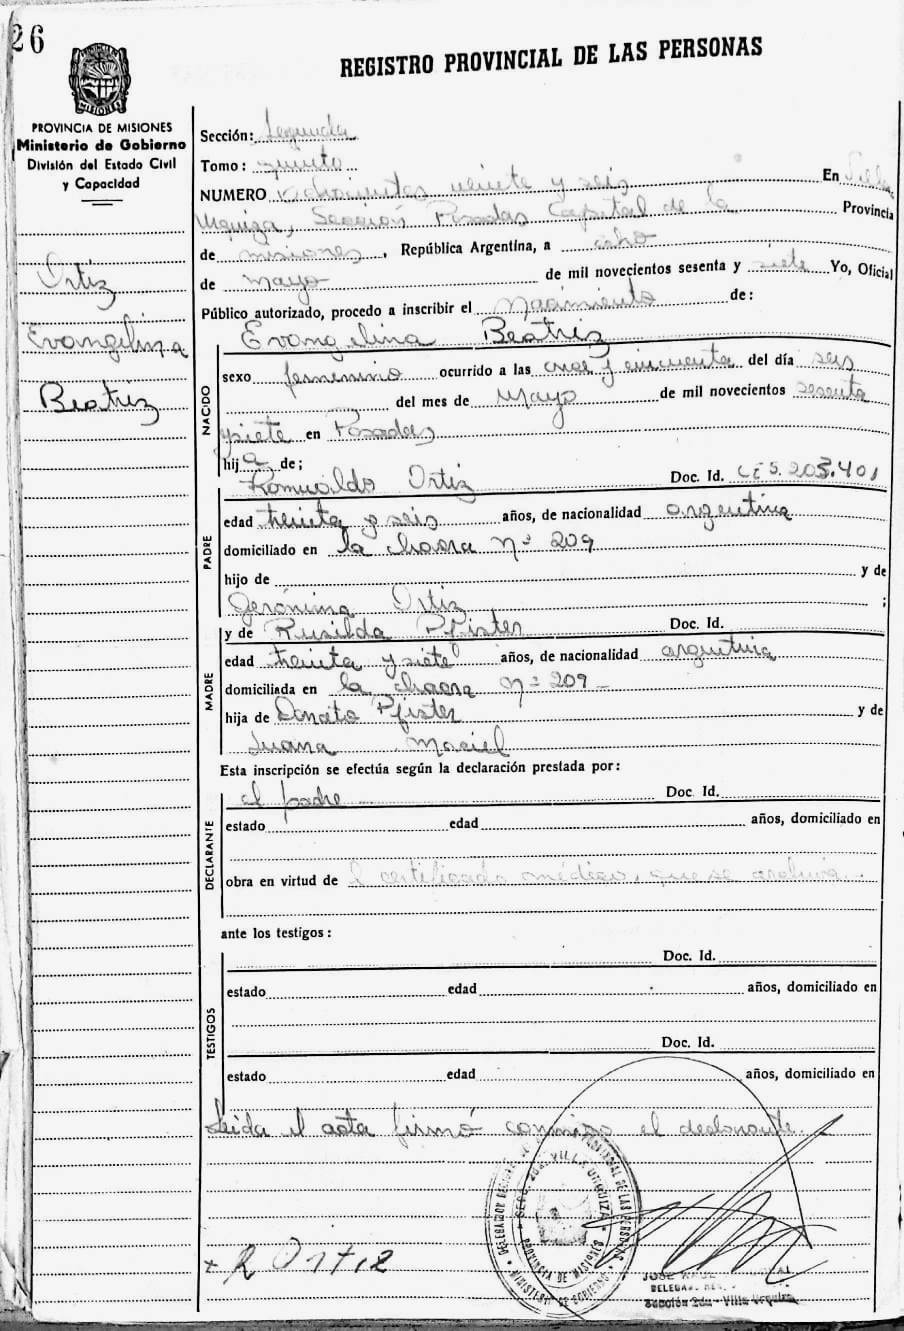 26
REGISTRO PROVINCIAL DE LAS PERSONAS
PROVINCIA DE MISIONES
Ministerio de Gobierno
División del Estado Civil
y Capacidad
Ortiz
Evangelina
Beatriz
Sección: Segunda
Tomo: quinto
NUMERO ochocientos veinte y seis En Villa
Urquiza, Sección Posadas Capital de la Provincia
de misiones, República Argentina, a ocho
de mayo de mil novecientos sesenta y siete Yo, Oficial
Público autorizado, procedo a inscribir el Nacimiento de:
Evangelina Beatriz
NACIDO
sexo femenino ocurrido a las cincuenta del día seis
del mes de Mayo de mil novecientos sesenta
y siete en Posadas
hija de;
Romualdo Ortiz Doc. Id.
PADRE
edad treinta y seis años, de nacionalidad argentina
domiciliado en la chacra Nº 209
hijo de y de
Gerónima Ortiz ;
y de Rusilda Pfister Doc. Id.
MADRE
edad treinta y siete años, de nacionalidad argentina
domiciliada en la chacra Nº 209
hija de Donato Pfister y de
Juana Maciel
Esta inscripción se efectúa según la declaración prestada por:
DECLARANTE
el padre Doc. Id.
estado edad años, domiciliado en
obra en virtud de l certificado médico, que se archiva.
ante los testigos:
TESTIGOS
Doc. Id.
estado edad años, domiciliado en
Doc. Id.
estado edad años, domiciliado en
Leida el acta firmó conmigo el declarante.
R Ortiz
SECC. 2da. VILLA URQUIZA
PROVINCIA DE MISIONES
MINISTERIO DE GOBIERNO
JOSE
DELEGADO
Sección 2da - Villa Urquiza